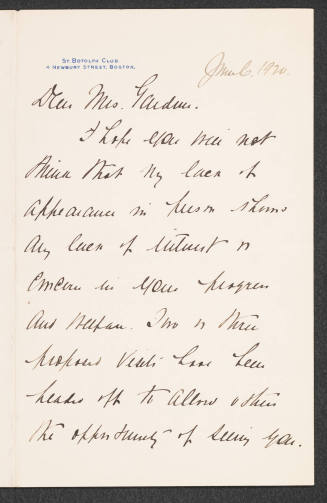 ST. BOTOLPH CLUB
4 NEWBURY STREET, BOSTON.
1920.
Dear Mrs. Gardner.
I hope you will not
think that my lack of
appearance in person shows
any lack of interest or
concern in your progress
and welfare. Two or three
proposed visits have been
headed off to allow others
the opportunity of seeing you.